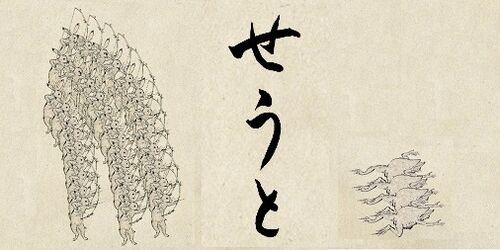 せうと